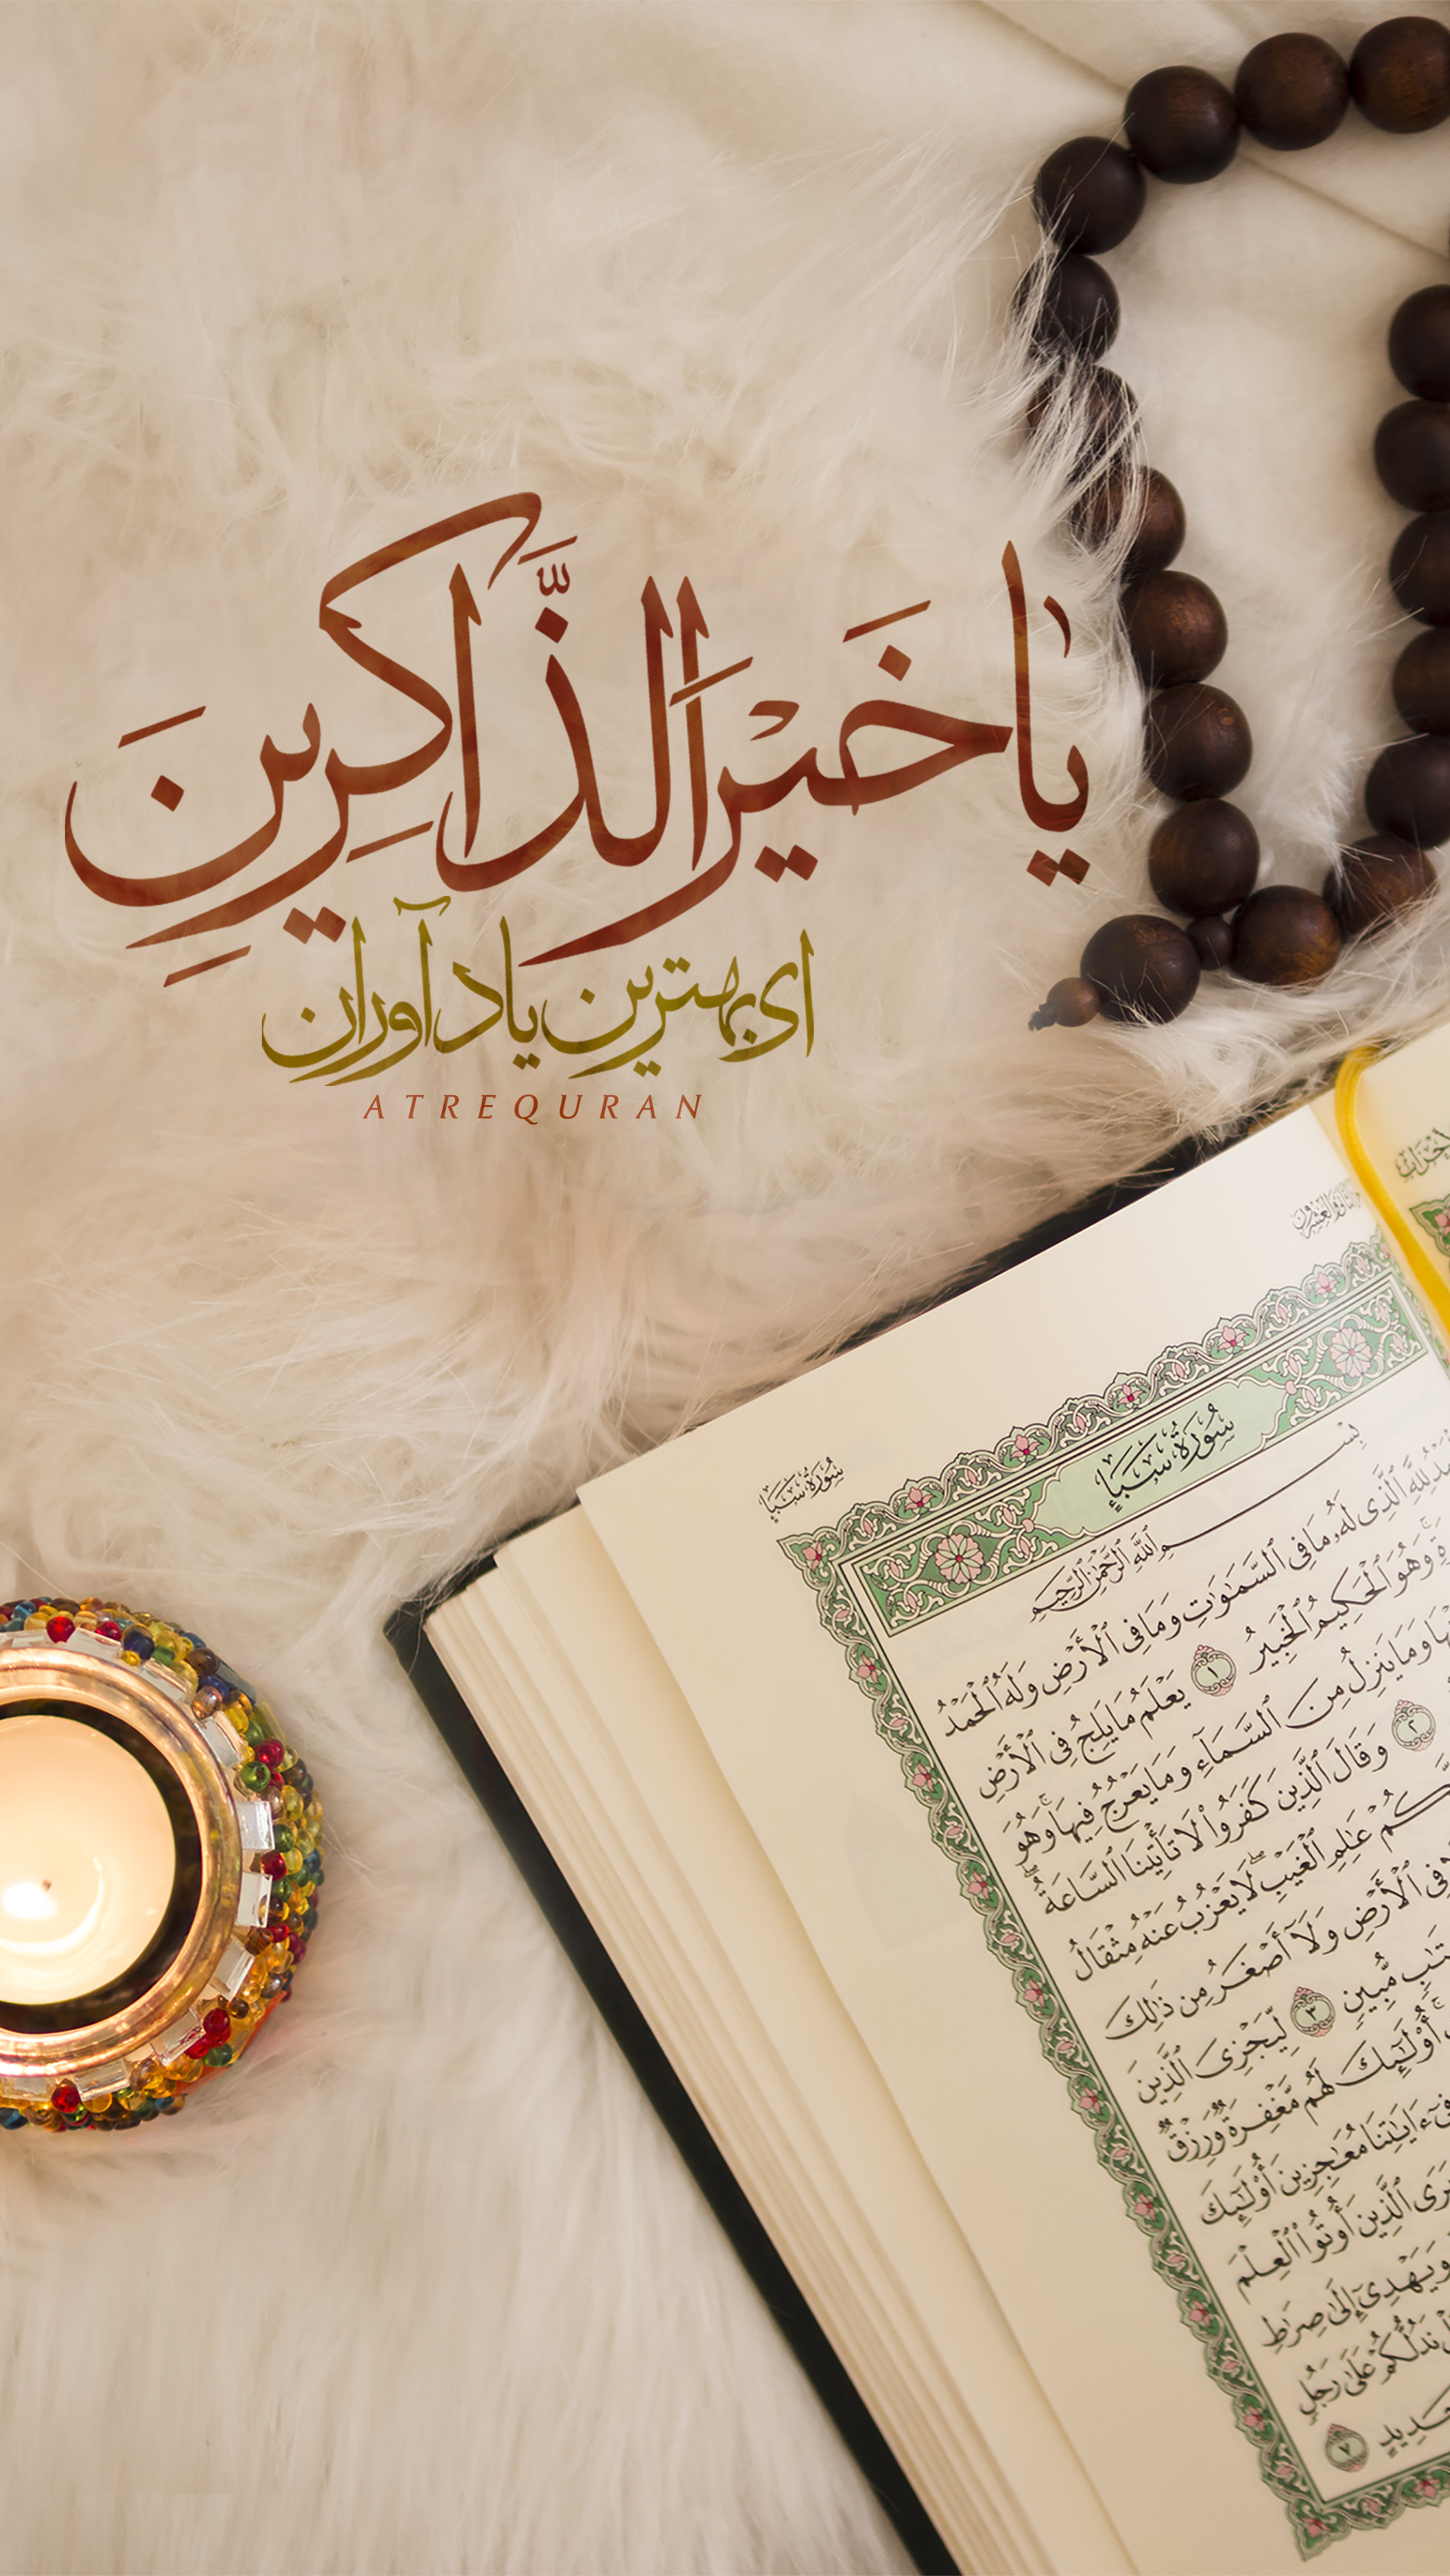 يٰا خَيْرَ الذّٰاكِرِينَ
ای بهترین یادآوران
ATREQURAN
سُورَةُ سَبَإٍ
سُورَةُ سَبَإٍ
بِسْمِ اللَّهِ الرَّحْمَٰنِ الرَّحِيمِ
لِلَّهِ ٱلَّذِى لَهُۥ مَا فِى ٱلسَّمَـٰوَٰتِ وَمَا فِى ٱلْأَرْضِ وَلَهُ ٱلْحَمْدُ
وَهُوَ ٱلْحَكِيمُ ٱلْخَبِيرُ ١ يَعْلَمُ مَا يَلِجُ فِى ٱلْأَرْضِ
وَمَا يَنزِلُ مِنَ ٱلسَّمَآءِ وَمَا يَعْرُجُ فِيهَا ۚ وَهُوَ
٢ وَقَالَ ٱلَّذِينَ كَفَرُوا۟ لَا تَأْتِينَا ٱلسَّاعَةُ ۖ
عَـٰلِمِ ٱلْغَيْبِ ۖ لَا يَعْزُبُ عَنْهُ مِثْقَالُ
فِى ٱلْأَرْضِ وَلَآ أَصْغَرُ مِن ذَٰلِكَ
مُّبِينٍ ٣ لِّيَجْزِىَ ٱلَّذِينَ
أُو۟لَـٰٓئِكَ لَهُم مَّغْفِرَةٌ وَرِزْقٌ
ءَايَـٰتِنَا مُعَـٰجِزِينَ أُو۟لَـٰٓئِكَ
ٱلَّذِينَ أُوتُوا۟ ٱلْعِلْمَ
وَيَهْدِىٓ إِلَىٰ صِرَٰطِ
نَدُلُّكُمْ عَلَىٰ رَجُلٍ
٧